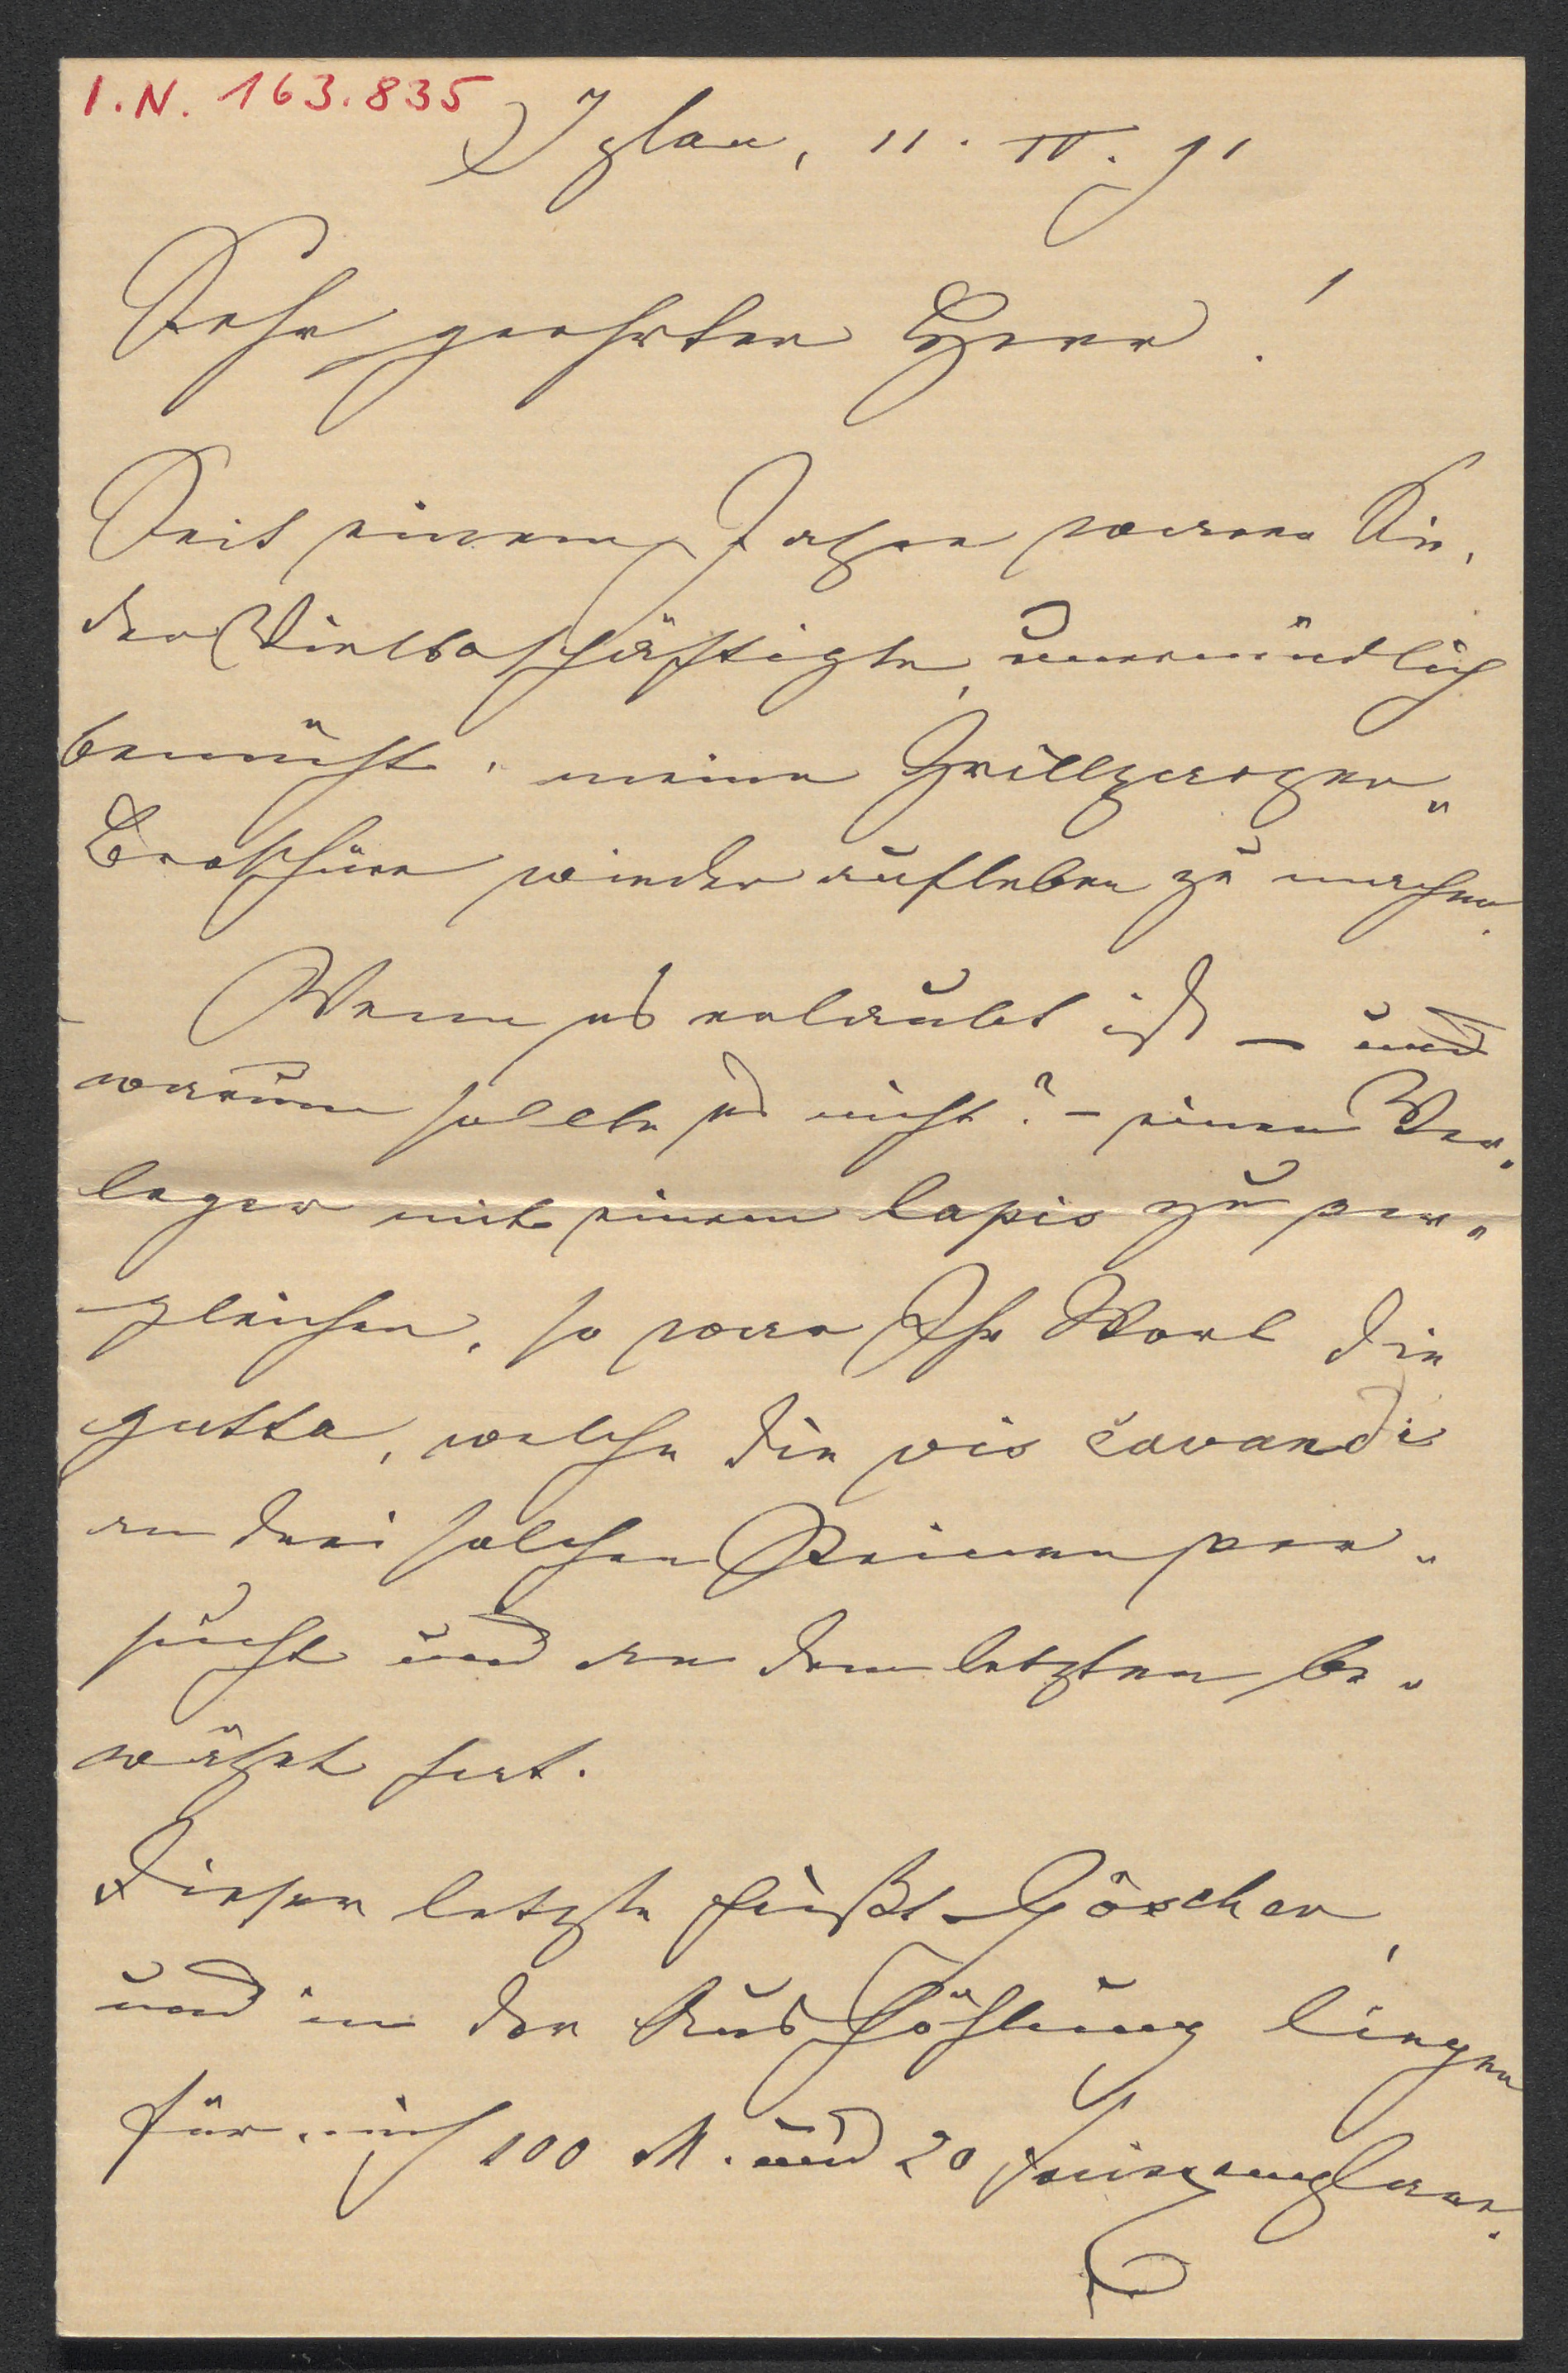 I.N. 163.835
Iglau, 11. IV. 91
Sehr geehrter Herr!
Seit einem Jahre waren Sie,
der Vielbeschäftigte, unermüdlich
bemüht, meine Grillparzer„
Broschüre wieder aufleben zu machen.
Wenn es erlaubt ist – und
warum sollte es nicht? – einen Ver„
leger mit einem lapis zu ver„
gleichen, so war Ihr Wort die
gutta, welche die vis cavandi
an drei solchen Steinen ver„
sucht und an dem letzten be„
währt hat.
Dieser letzte heißt Göschen,
und in der Aushöhlung liegen
für mich 100 M. und 20 Freiexemplare.